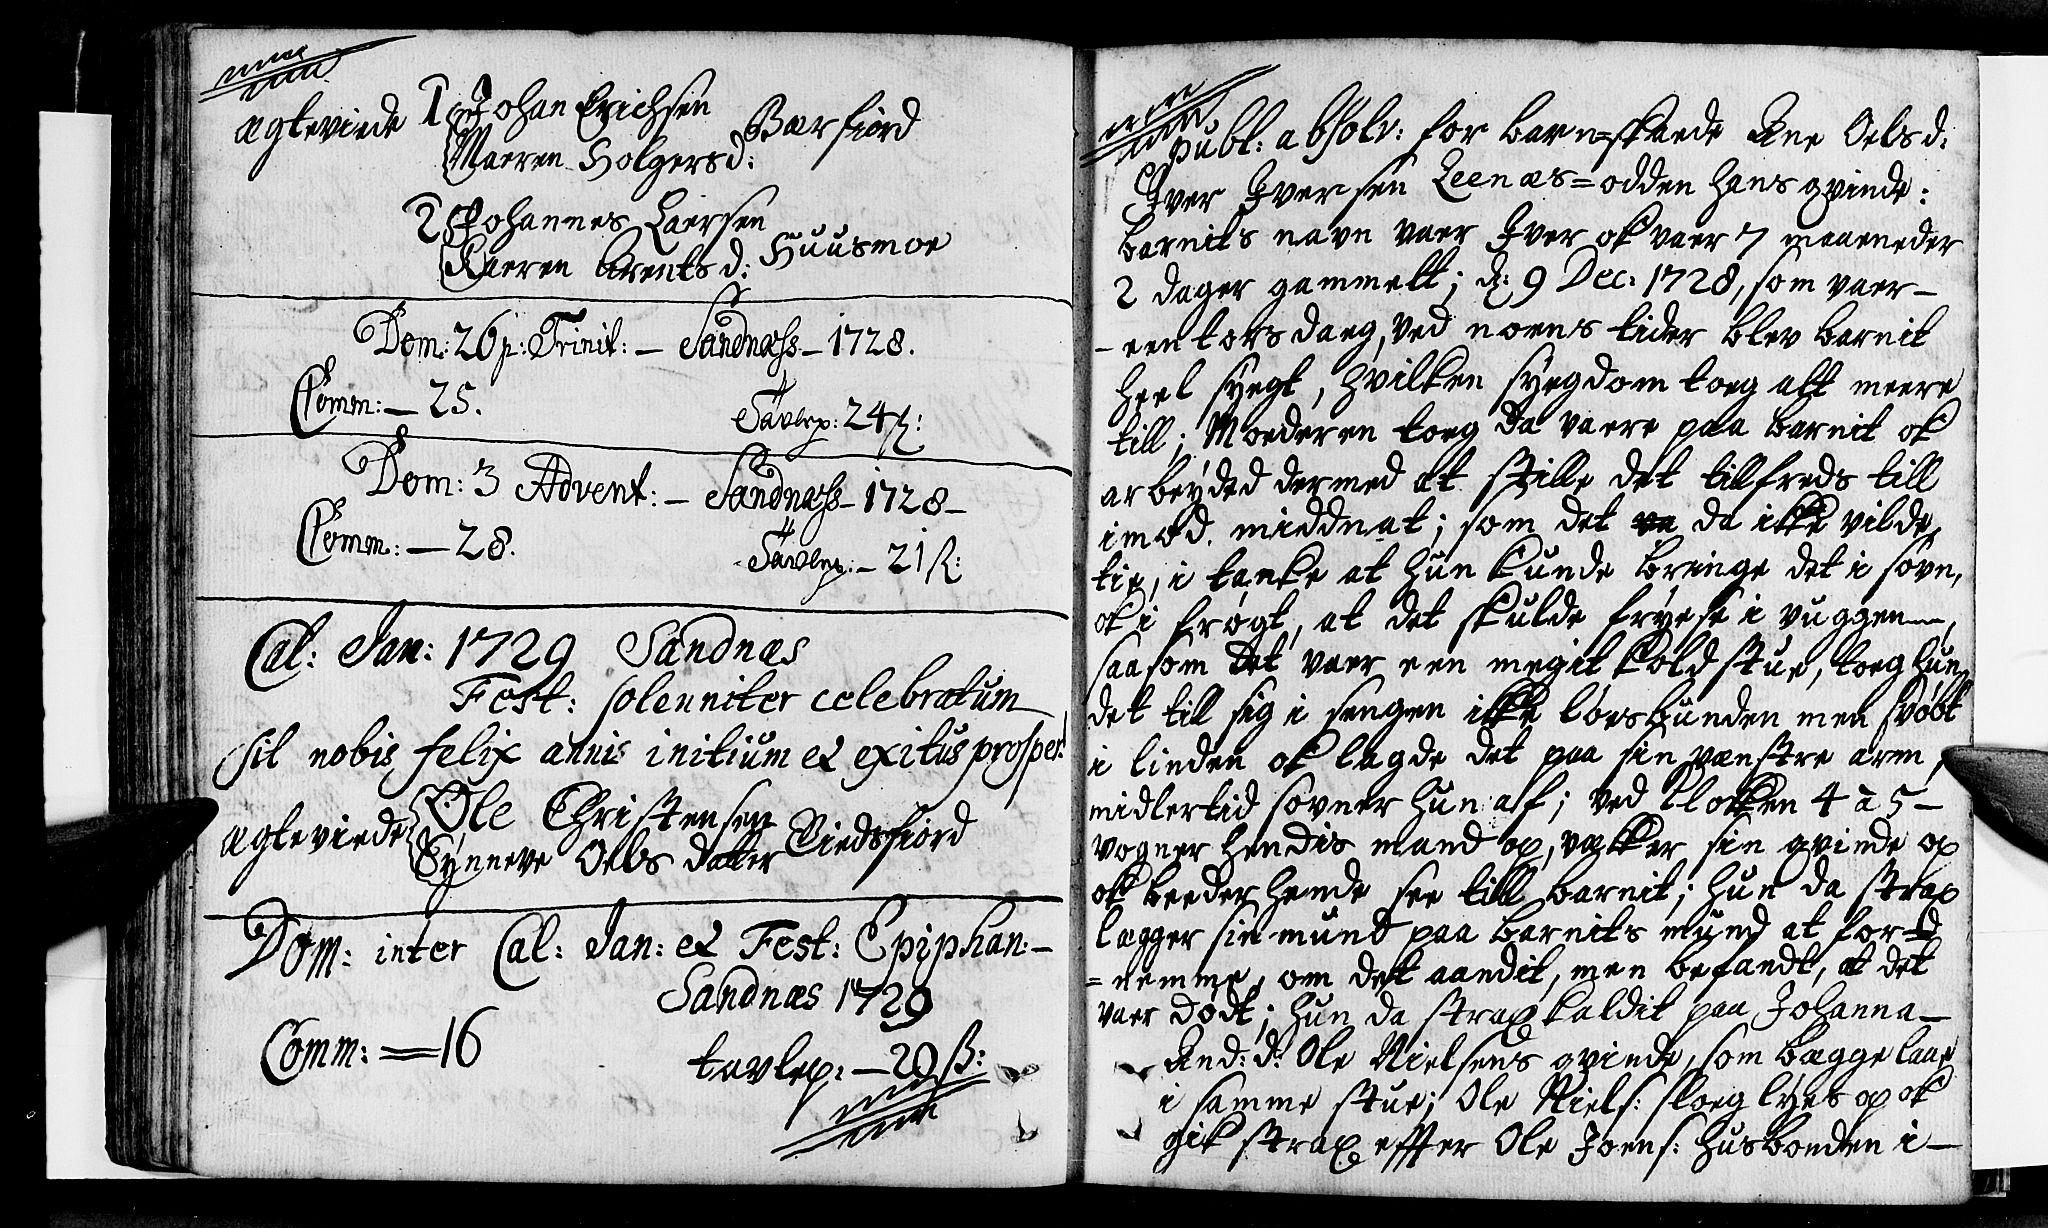 agteviede 1 Johan Erichsen
Maeren Holgersd: Bærfiord
2 Johannes Laersen
Kaeren Arentsd: Huusmoe
Dom: 26 p: Trinit: – Sandnæss – 1728.
Comm: – 25.
Tavlep: 24 ß:
Dom: 3 Advent: – Sandnæss – 1728 –
Comm: – 28.
Tavlep: – 21 ß:
Cal: Jan: 1729 Sandnæs
Fest: solenniter celebratum
sit nobis felix annis initium et exitus prosper!
agteviede Ole Christensen
Synneve Oels datter Giedsfiord
Dom: inter Cal: Jan: et Fest: Epiphan: –
Sandnæs 1729
Comm: = 16
tavlep: – 20 ß:
publ: absolv: for barn-skaede Ane Oelsd:
Iver Iversen Leenæs=odden hans qvinde:
barnits navn vaer Iver ok vaer 7 maaneder
2 dager gammelt; d: 9 Dec: 1728, som vaer –
– een torsdaeg, ved noens tider blev barnit
heel syegt, hvilken syegdom toeg alt meere
till; Moederen toeg da vaere paa barnit ok
arbeÿded dermed at stille det tillfreds till
imod middnat; som det da ikke vilde
tie, i tanke at hun kunde bringe det i søvn,
ok i frøgt, at det skulde fryese i vuggen,
saasom det vaer een megit kold stue, toeg hun
det till sig i sengen ikke løesbunden men svøbt
i linden ok lagde det paa sin vænstre arm,
midlertid søvner hun af; ved klokken 4 à 5 –
vogner hendis mand op, vækker sin qvinde op
ok beeder hende see till barnit; hun da strax
lægger sin mund paa barnits mund at for-
=nemme, om det aandit, men befandt, at det
vaer dødt; hun da strax kaldit paa Johanna –
And: d: Ole Nielsens qvinde, som bægge laae
i samme stue; Ole Niels: sloeg lyes op ok
gik strax effter Ole Joens: husbonden i –